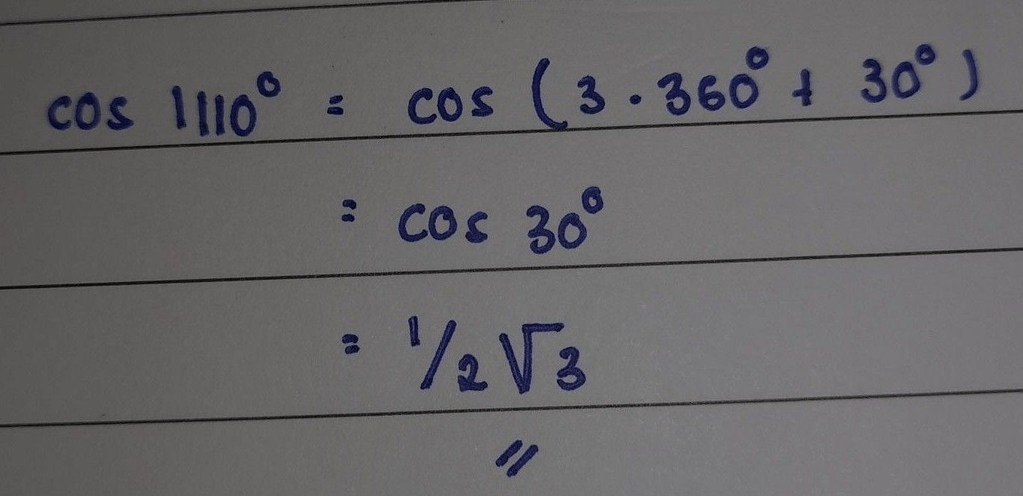 cos 1110° = cos (3 . 360° + 30°)
= cos 30°
= 1/2 √3
//